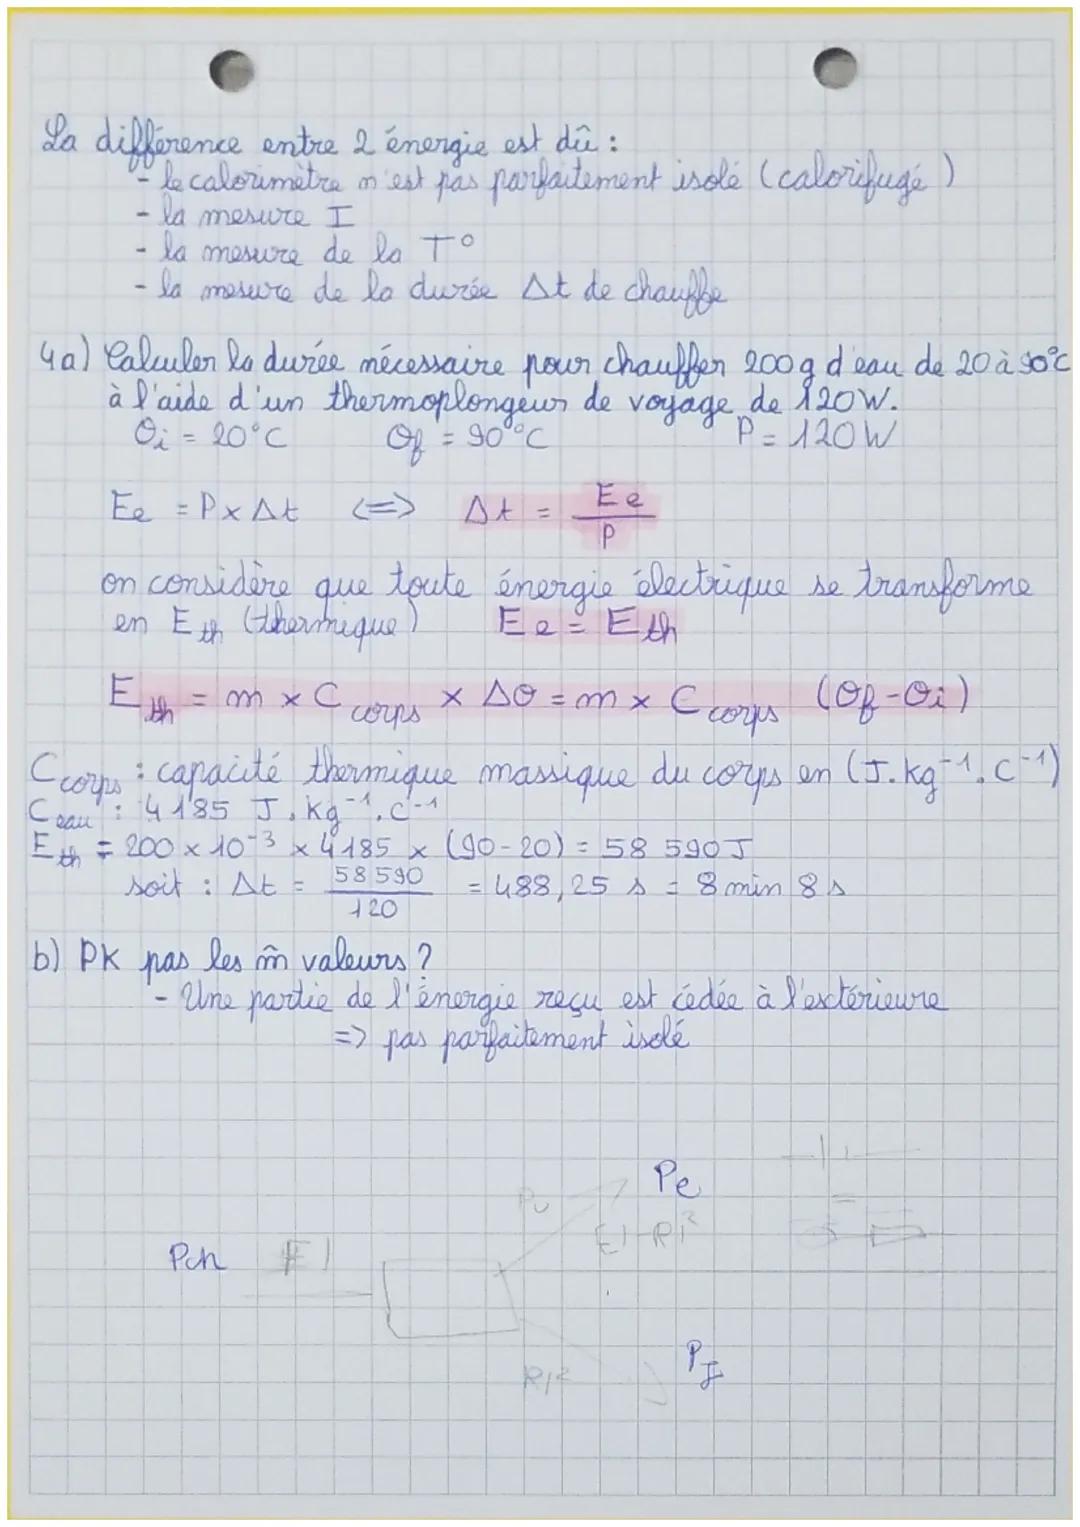 La différence entre 2 énergie est dû :
- le calorimètre n'est pas parfaitement isolé (calorifugé)
- la mesure I
- la mesure de la T°
- la mesure de la durée Δt de chauffe
4a) Calculer la durée nécessaire pour chauffer 200 g d'eau de 20 à 90°C
à l'aide d'un thermoplongeur de voyage de 120W.
Θi = 20°C Θf = 90°C P = 120W
Ee = P x Δt <=> Δt = Ee / P
on considère que toute énergie électrique se transforme
en Eth (thermique) Ee = Eth
Eth = m x Ccorps x ΔΘ = m x Ccorps (Θf - Θi)
Ccorps : capacité thermique massique du corps en (J.kg⁻¹.C⁻¹)
Ceau : 4185 J.kg⁻¹.C⁻¹
Eth = 200 x 10⁻³ x 4185 x (90-20) = 58 590 J
soit : Δt = 58590 / 120 = 488,25 s = 8 min 8 s
b) PK pas les m̂ valeurs ?
- Une partie de l'énergie reçu est cédée à l'extérieure
=> pas parfaitement isolé
Pu Pe
EI-RI²
Pch EI
PJ
RI²